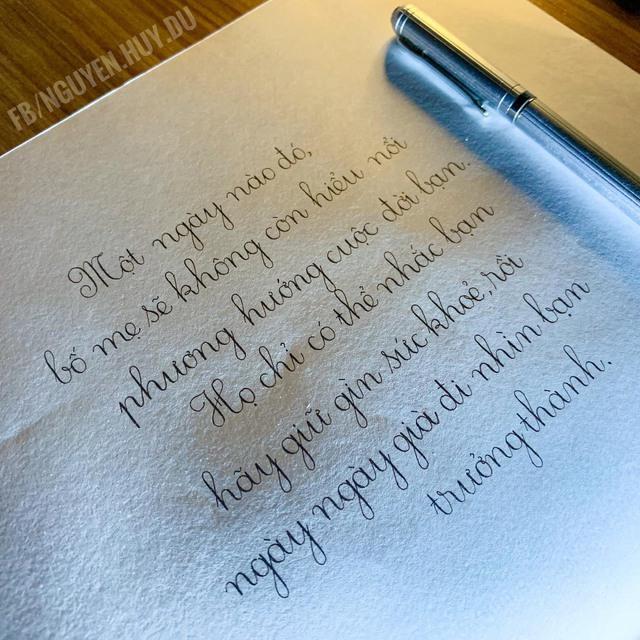 FB/NGUYEN.HUY.DU
Một ngày nào đó,
bố mẹ sẽ không còn hiểu nổi
phương hướng cuộc đời bạn.
Họ chỉ có thể nhắc bạn
hãy giữ gìn sức khoẻ, rồi
ngày ngày già đi nhìn bạn
trưởng thành.